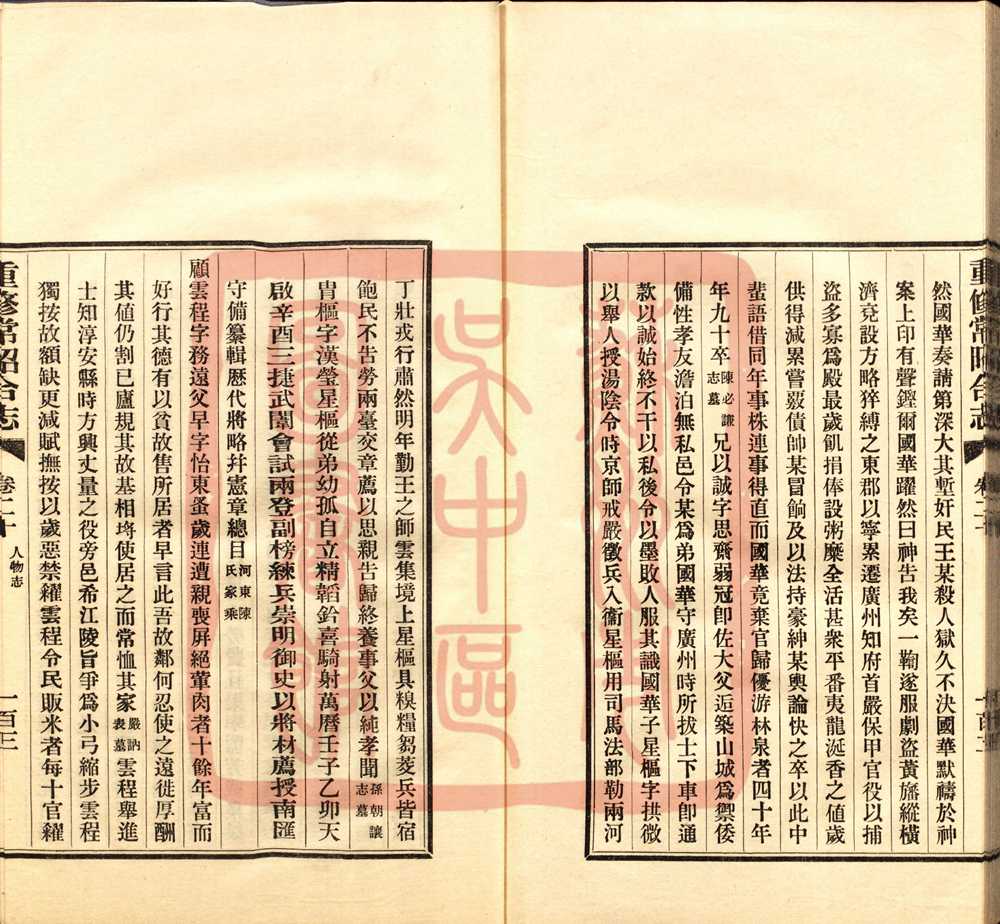 重修常昭合志
卷二十
一百三
然國華奏請第深大其塹奸民王某殺人獄久不決國華默禱於神
案上印有聲鏗爾國華躍然曰神告我矣一鞫遂服劇盜黃旛縱橫
濟兗設方略猝縛之東郡以寧累遷廣州知府首嚴保甲官役以捕
盜多寡爲殿最歲飢捐俸設粥糜全活甚衆平番夷龍涎香之值歲
供得減累嘗覈債帥某冒餉及以法持豪紳某輿論快之卒以此中
蜚語借同年事株連事得直而國華竟棄官歸優游林泉者四十年
年九十卒陳必謙志墓兄以誠字思齋弱冠卽佐大父逅築山城爲禦倭
備性孝友澹泊無私邑令某爲弟國華守廣州時所拔士下車卽通
款以誠始終不干以私後令以墨敗人服其識國華子星樞字拱微
以舉人授湯陰令時京師戒嚴徵兵入衞星樞用司馬法部勒兩河
丁壯戎行肅然明年勤王之師雲集境上星樞具糗糧芻茭兵皆宿
飽民不告勞兩臺交章薦以思親告歸終養事父以純孝聞孫朝讓志墓
胄樞字漢瑩星樞從弟幼孤自立精韜鈐喜騎射萬曆壬子乙卯天
啟辛酉三捷武闈會試兩登副榜練兵崇明御史以將材薦授南匯
守備纂輯歷代將略幷憲章總目河東陳氏家乘
顧雲程字務遠父早字怡東蚤歲連遭親喪屏絕葷肉者十餘年富而
好行其德有以貧故售所居者早言此吾故鄰何忍使之遠徙厚酬
其値仍割己廬規其故基相埒使居之而常恤其家嚴訥表墓雲程舉進
士知淳安縣時方興丈量之役旁邑希江陵旨爭爲小弓縮步雲程
獨按故額缺更減賦撫按以歲惡禁糴雲程令民販米者每十官糴
重修常昭合志
卷二十
人物志
一百三